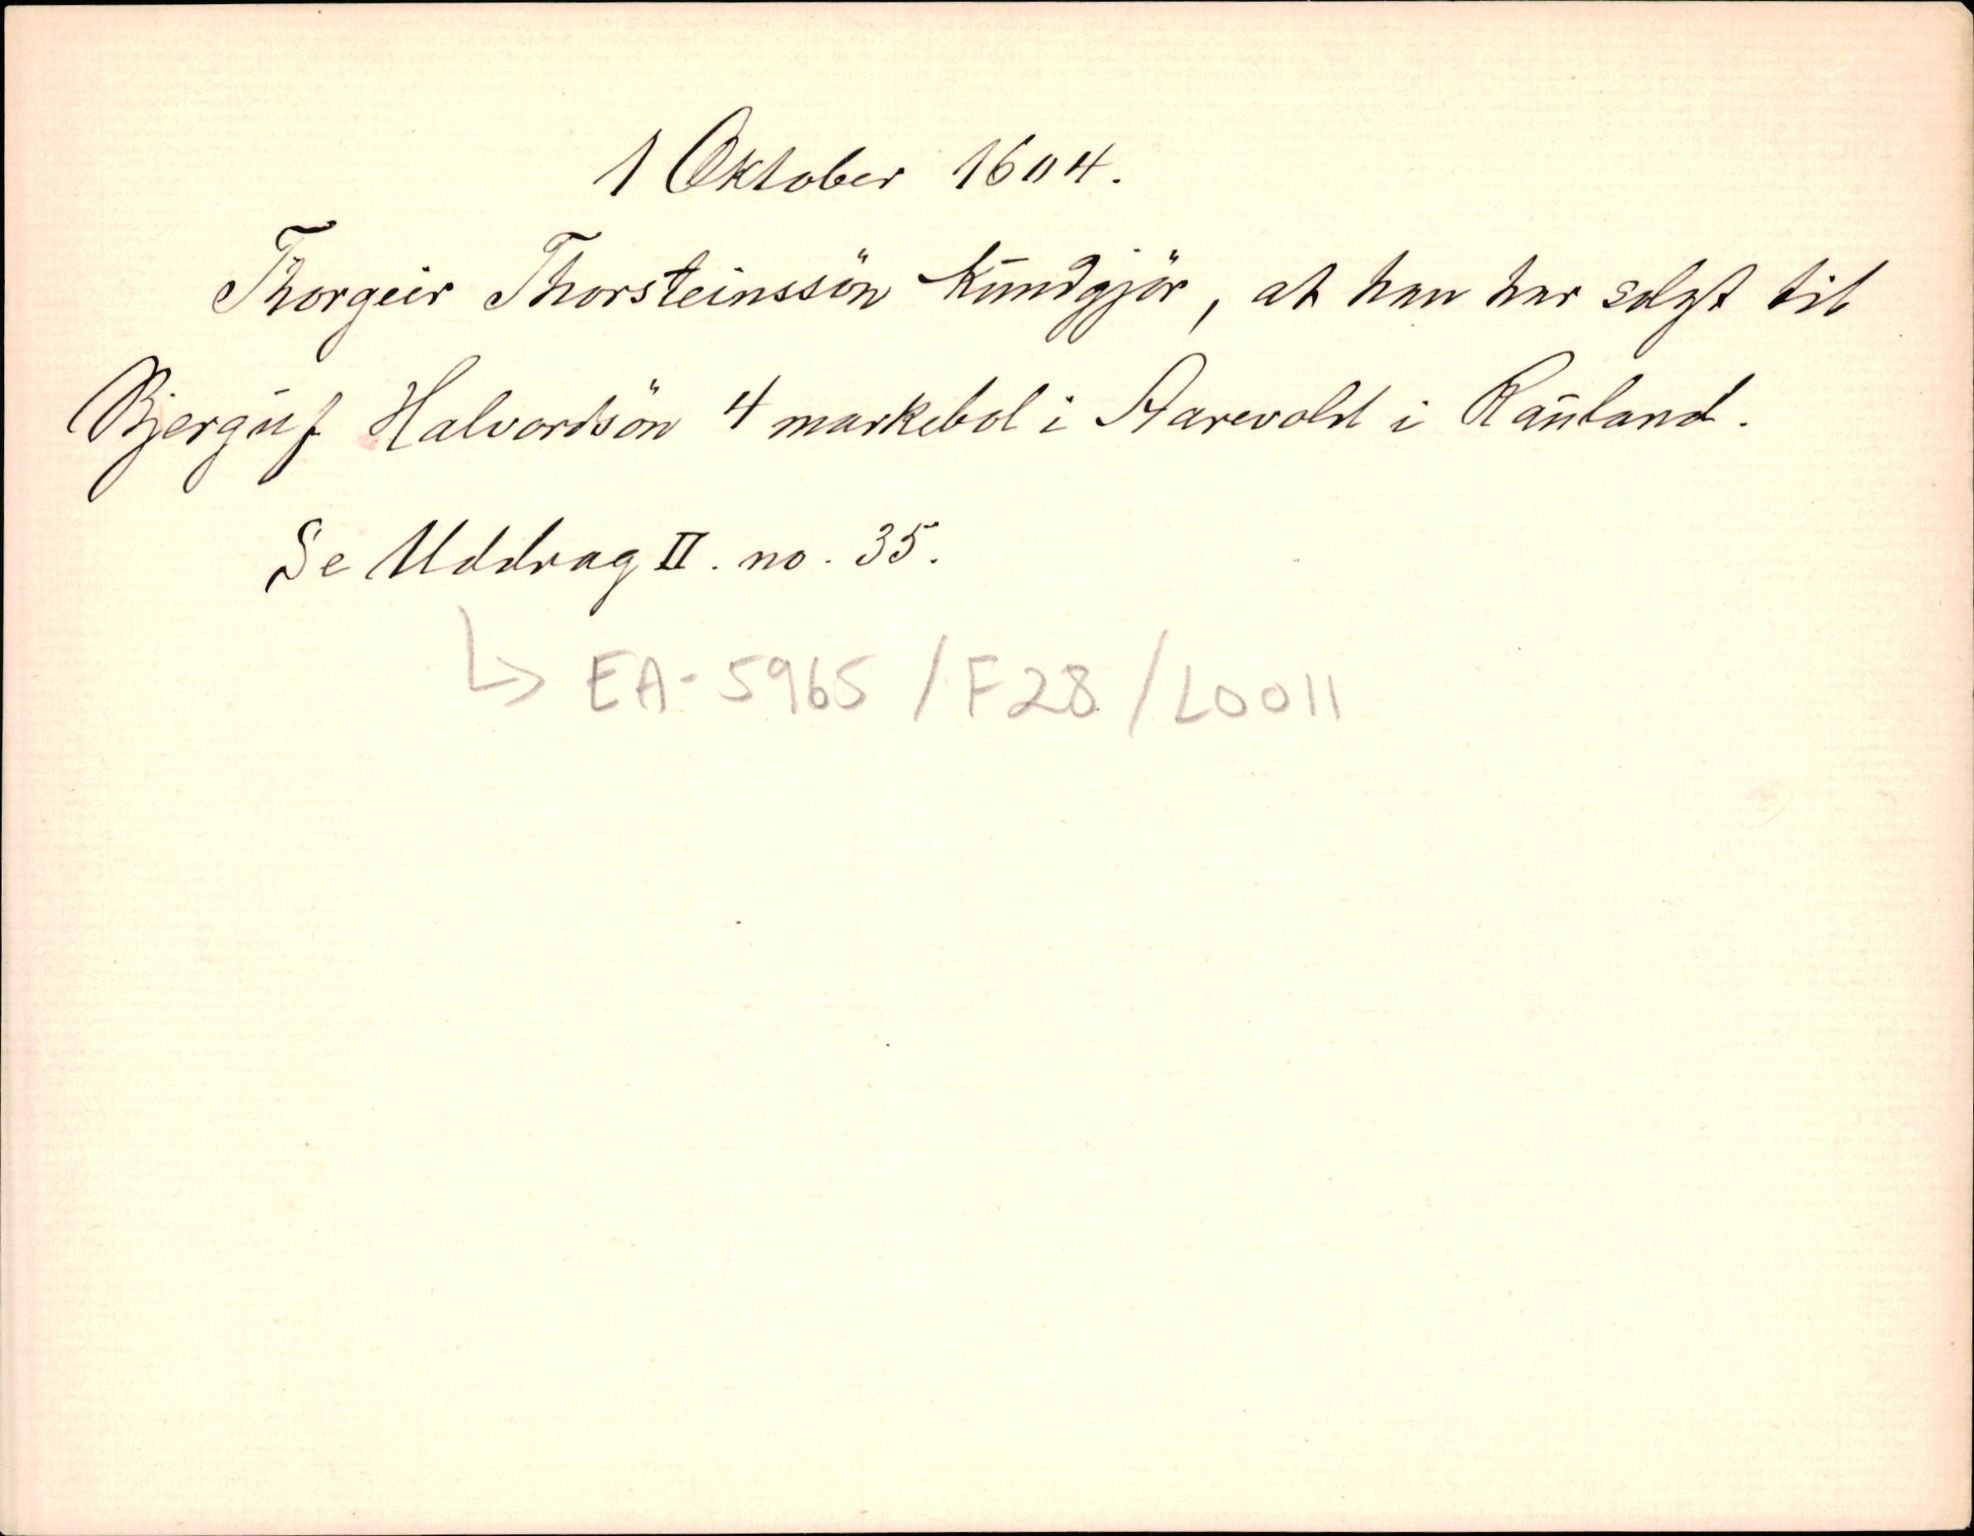 1 Oktober 1604.
Thorgeir Thorsteinssön kundgjör, at han har solgt til
Bjerguf Halvordsön 4 markebol i Aarevold i Rauland.
Se Uddrag II. no. 35.
↳ EA-5965 / F28 / L0011